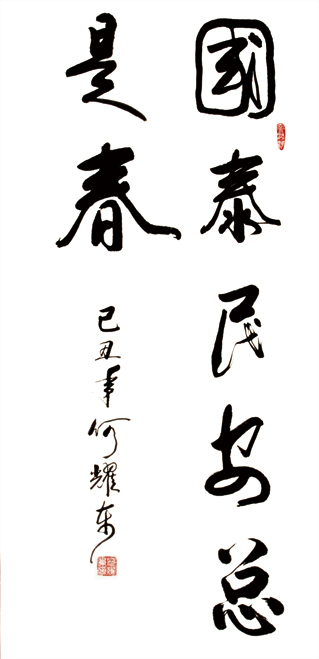 國泰民安总
是春
己丑年何耀东